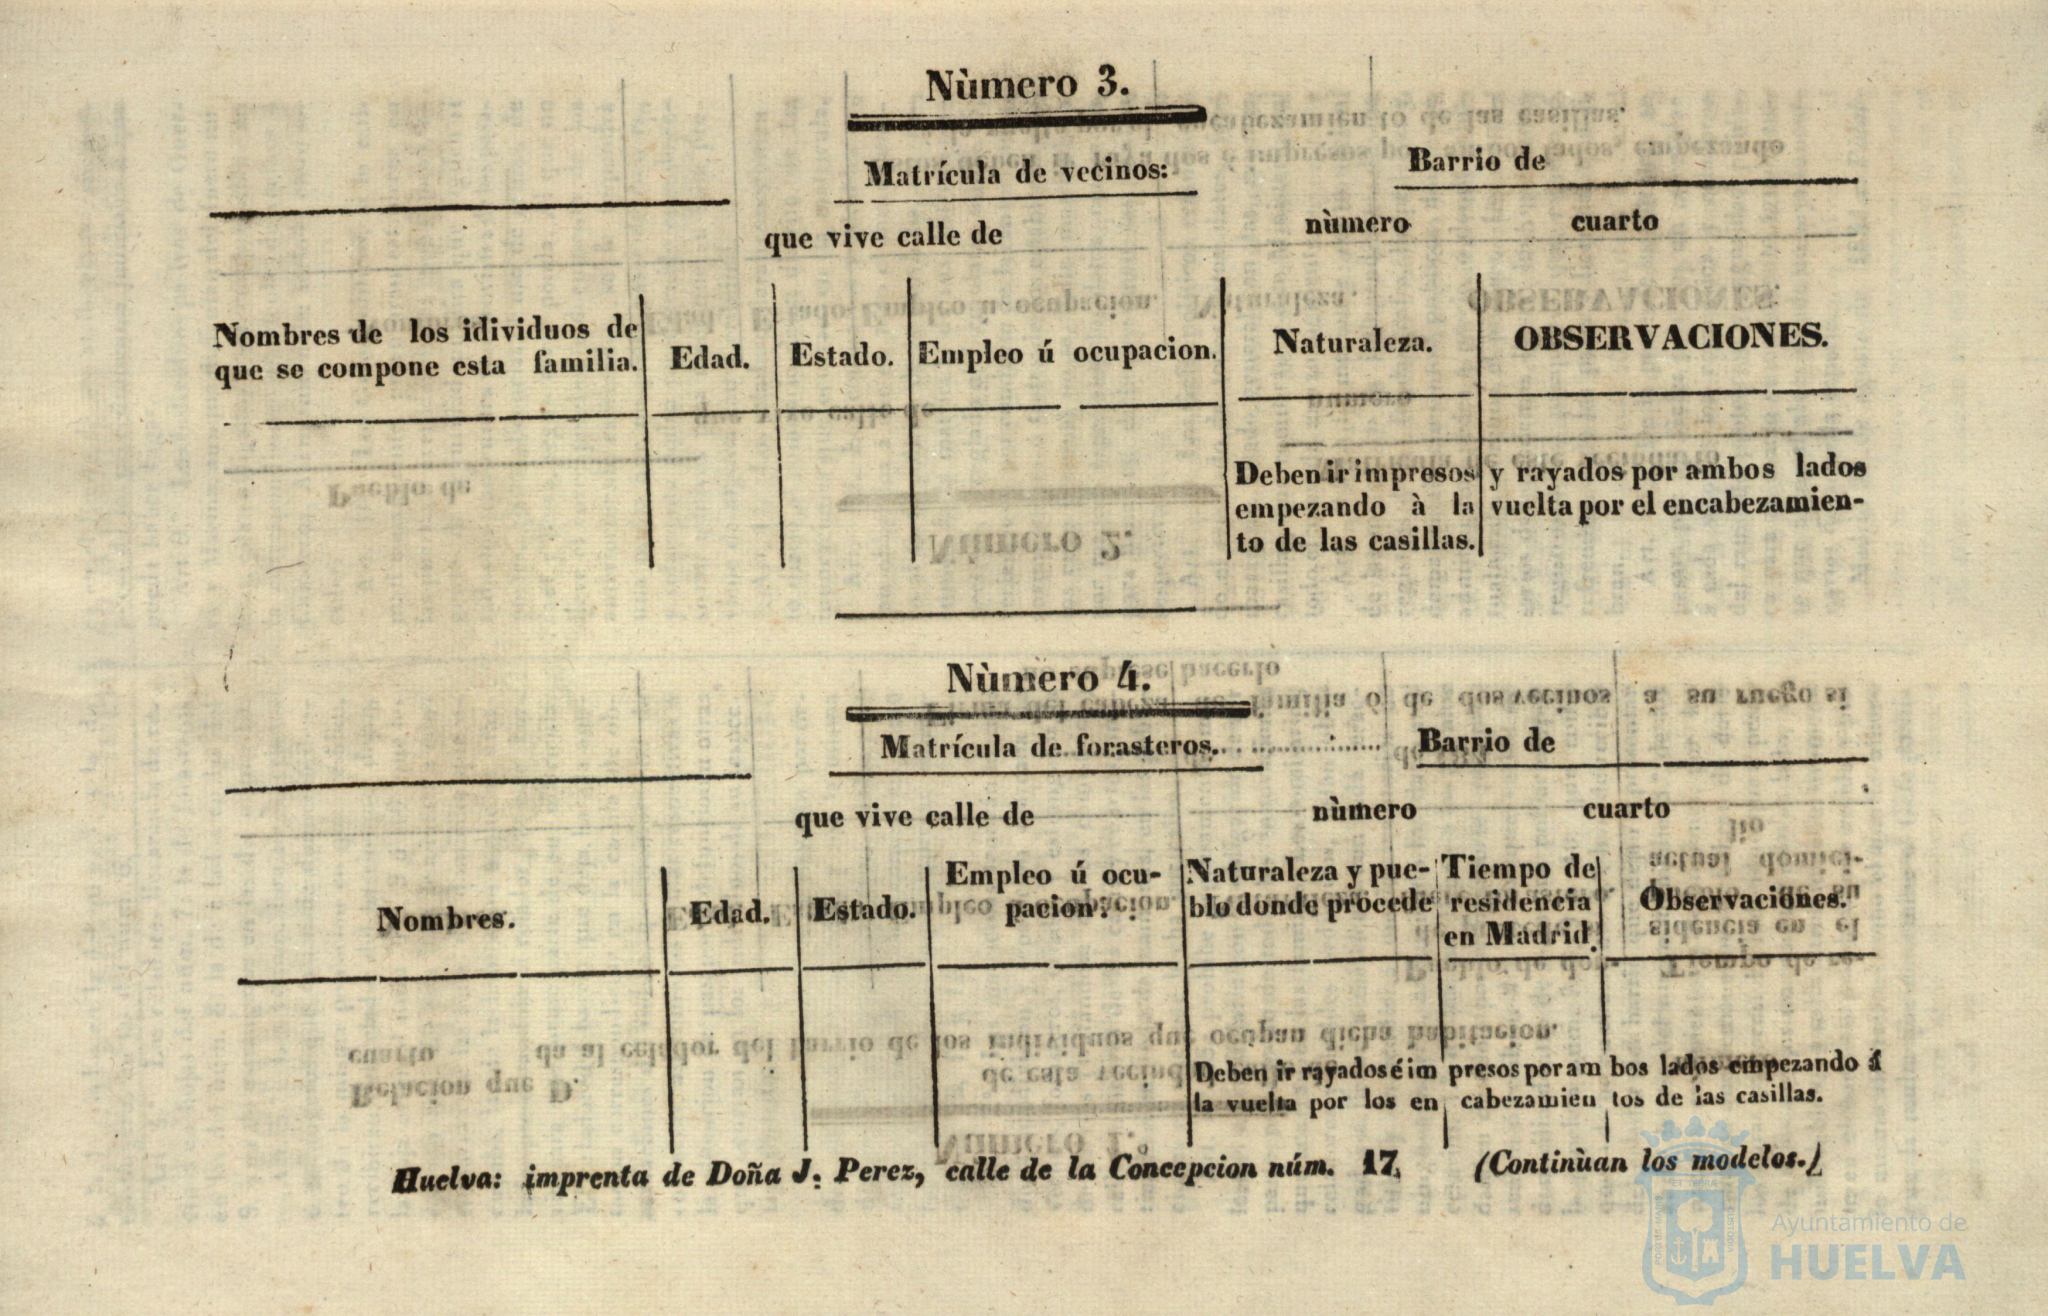 Nùmero 3.
Matrícula de vecinos: Barrio de
que vive calle de nùmero cuarto
Nombres de los idividuos de
que se compone esta familia. Edad. Estado. Empleo ú ocupacion. Naturaleza. OBSERVACIONES.
Deben ir impresos y rayados por ambos lados
empezando à la vuelta por el encabezamien-
to de las casillas.
Nùmero 4.
Matrícula de forasteros. Barrio de
que vive calle de nùmero cuarto
Nombres. Edad. Estado. Empleo ú ocu-
pacion. Naturaleza y pue-
blo donde procede Tiempo de
residencia
en Madrid. Observaciones.
Deben ir rayados é im presos por am bos lados empezando á
la vuelta por los en cabezamien tos de las casillas.
Huelva: imprenta de Doña J. Perez, calle de la Concepcion núm. 17. (Continùan los modelos.)
Ayuntamiento de
HUELVA